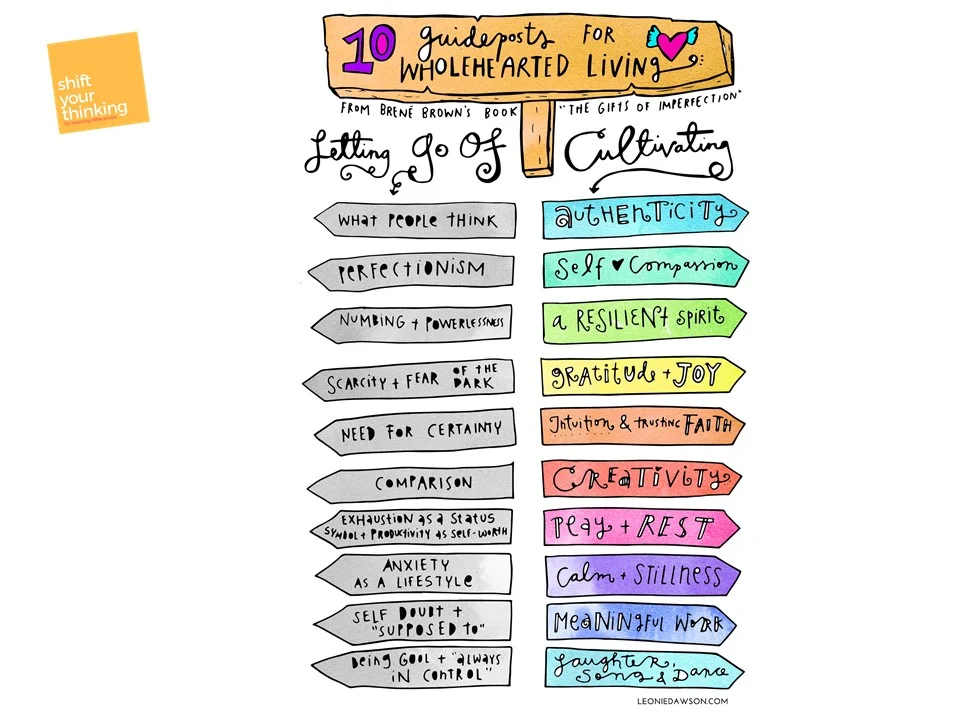 shift
your
thinking
10 guideposts FOR
WHOLEHEARTED LIVING
FROM BRENÉ BROWN'S BOOK "THE GIFTS OF IMPERFECTION"
Letting go Of
Cultivating
WHAT PEOPLE THINK
AUTHENTICITY
PERFECTIONISM
Self ♥ Compassion
NUMBING + POWERLESSNESS
a RESILIENT SPIRIT
SCARCITY + FEAR OF THE
DARK
GRATITUDE + JOY
NEED FOR CERTAINTY
Intuition & TRUSTING FAITH
COMPARISON
CREATIVITY
EXHAUSTION AS A STATUS
SYMBOL + PRODUCTIVITY AS SELF-WORTH
Play + REST
ANXIETY
AS A LIFESTYLE
Calm + STILLNESS
SELF DOUBT +
"SUPPOSED TO"
MEANINGFUL WORK
Being COOL + "ALWAYS
IN CONTROL"
Laughter,
Song & Dance
LEONIEDAWSON.COM